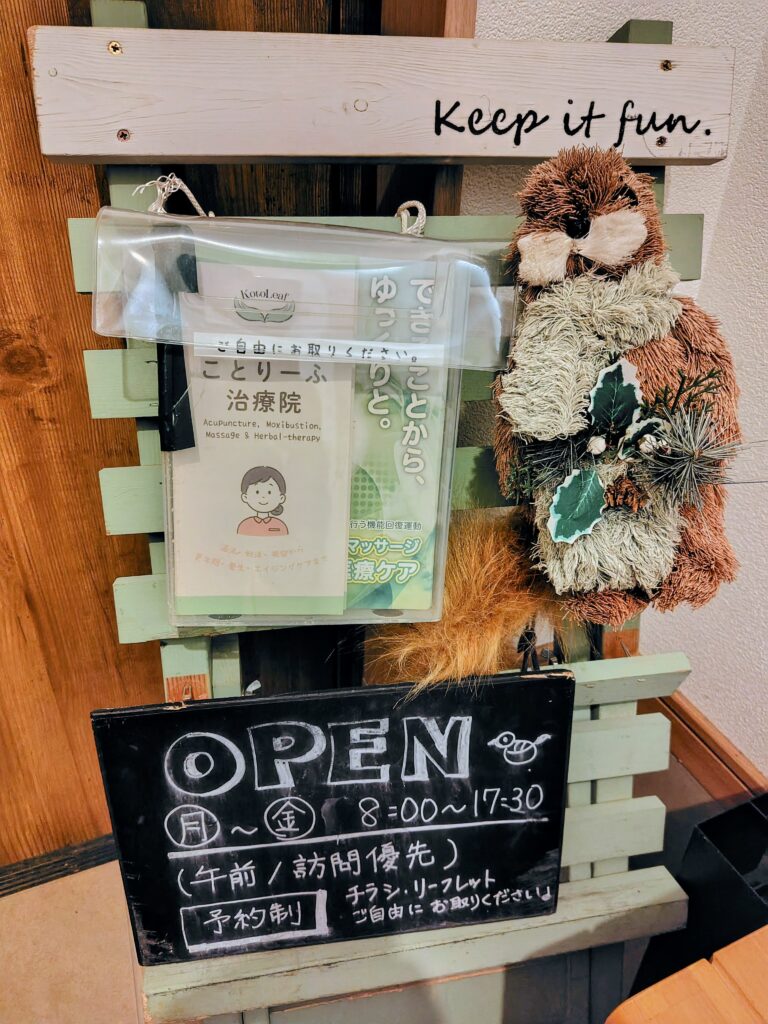 Keep it fun.
KotoLeaf
ご自由にお取りください。
ことりーふ
治療院
Acupuncture, Moxibustion,
Massage & Herbal-therapy
できることから、
ゆっくりと。
行う機能回復運動
マッサージ
療ケア
OPEN
月～金 8:00～17:30
(午前/訪問優先)
予約制
チラシ・リーフレット
ご自由にお取りください♩